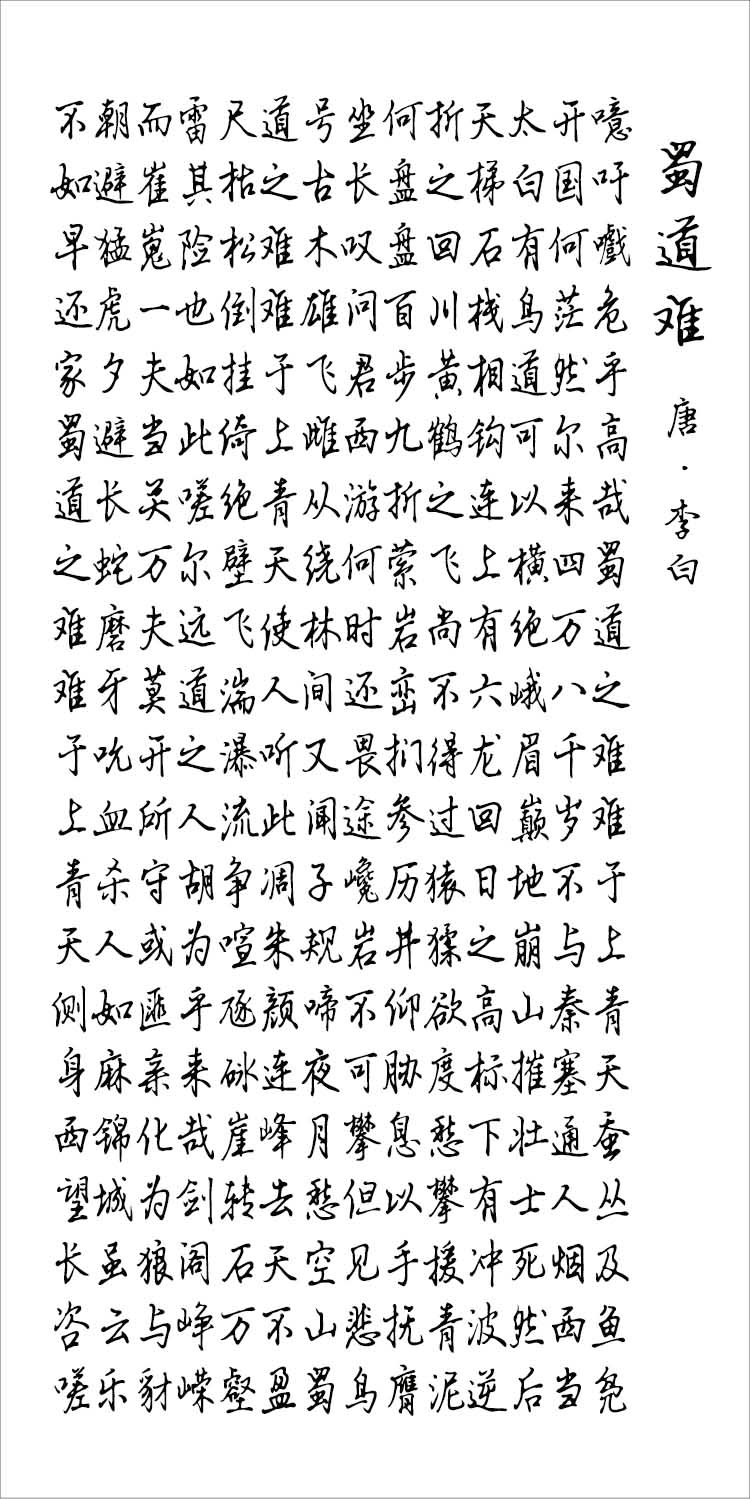 蜀道难 唐·李白
噫吁嚱危乎高哉蜀道之难难于上青天蚕丛及鱼凫
开国何茫然尔来四万八千岁不与秦塞通人烟西当
太白有鸟道可以横绝峨眉巅地崩山摧壮士死然后
天梯石栈相钩连上有六龙回日之高标下有冲波逆
折之回川黄鹤之飞尚不得过猿猱欲度愁攀援青泥
何盘盘百步九折萦岩峦扪参历井仰胁息以手抚膺
坐长叹问君西游何时还畏途巉岩不可攀但见悲鸟
号古木雄飞雌从绕林间又闻子规啼夜月愁空山蜀
道之难难于上青天使人听此凋朱颜连峰去天不盈
尺枯松倒挂倚绝壁飞湍瀑流争喧豗砯崖转石万壑
雷其险也如此嗟尔远道之人胡为乎来哉剑阁峥嵘
而崔嵬一夫当关万夫莫开所守或匪亲化为狼与豺
朝避猛虎夕避长蛇磨牙吮血杀人如麻锦城虽云乐
不如早还家蜀道之难难于上青天侧身西望长咨嗟